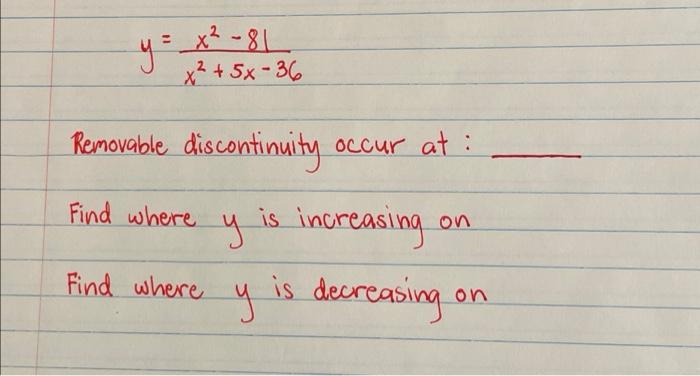 y = x² - 81 / x² + 5x - 36
Removable discontinuity occur at : ______
Find where y is increasing on
Find where y is decreasing on